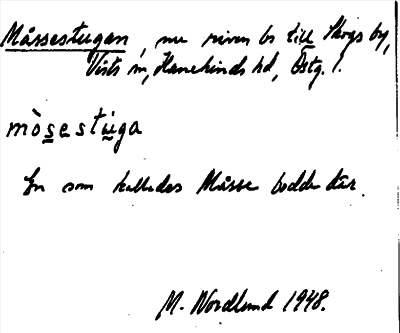 Måssestugan, nu riven bs till Skogs by,
Vists sn, Hanekinds hd, Östg. l.
mòsestùga
En som kallades Måsse bodde där.
M. Nordlund 1948.